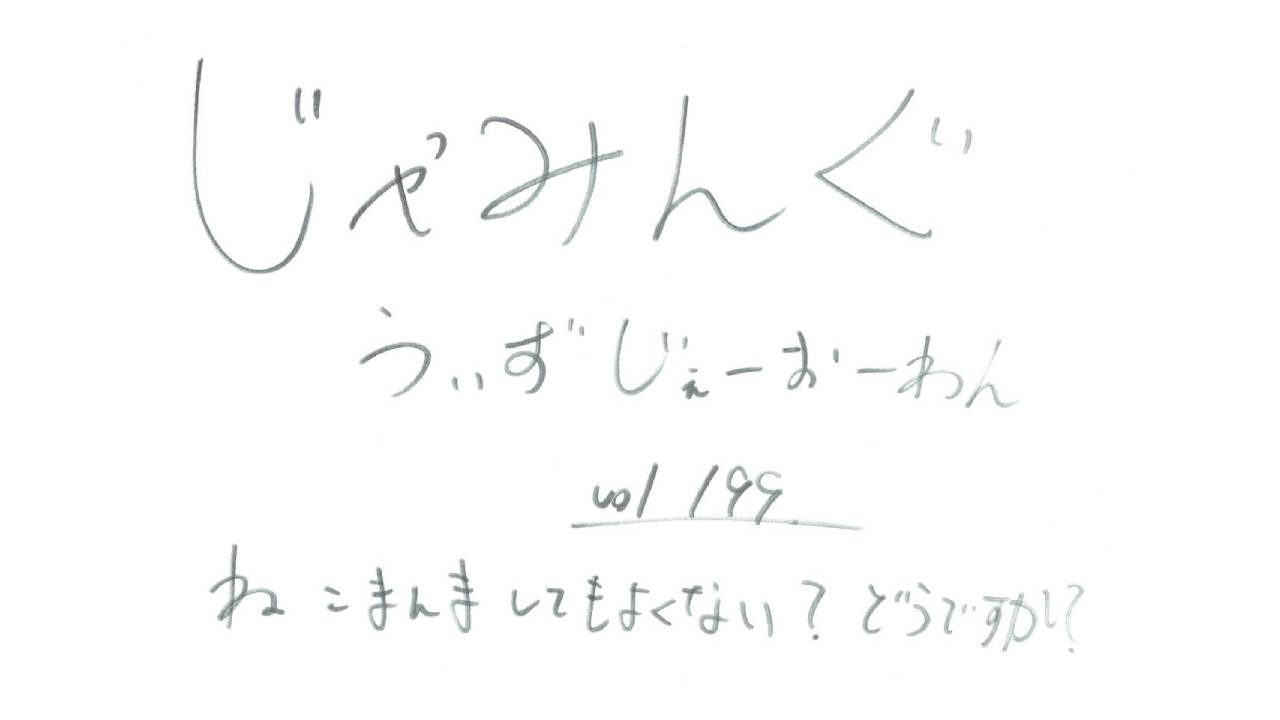 じゃみんぐ
うぃずじぇーおーわん
vol 199
ねこまんましてもよくない？どうですか？